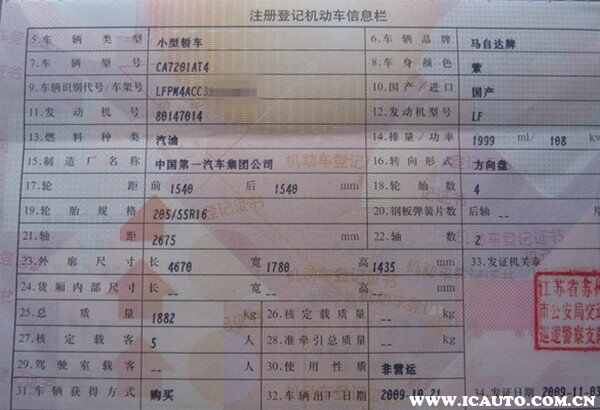 注册登记机动车信息栏
5.车辆类型 小型轿车 6.车辆品牌 马自达牌
7.车辆型号 CA7201AT4 8.车身颜色 紫
9.车辆识别代号/车架号 LFPM4ACC3 10.国产/进口 国产
11.发动机号 80147014 12.发动机型号 LF
13.燃料种类 汽油 14.排量/功率 1999 ml/ 108 kw
15.制造厂名称 中国第一汽车集团公司 16.转向形式 方向盘
17.轮距 前 1540 后 1540 mm 18.轮胎数 4
19.轮胎规格 205/55R16 20.钢板弹簧片数 后轴 --
21.轴距 2675 mm 22.轴数 2
23.外廓尺寸 长 4670 宽 1780 高 1435 mm 33.发证机关章
24.货厢内部尺寸 长 -- 宽 -- 高 -- mm
25.总质量 1882 kg 26.核定载质量 -- kg
27.核定载客 5 人 28.准牵引总质量 -- kg
29.驾驶室载客 -- 人 30.使用性质 非营运
31.车辆获得方式 购买 32.车辆出厂日期 2009-10-21 34.发证日期 2009-11-03
江苏省苏州
市公安局交通
巡逻警察支队
www.icauto.com.cn